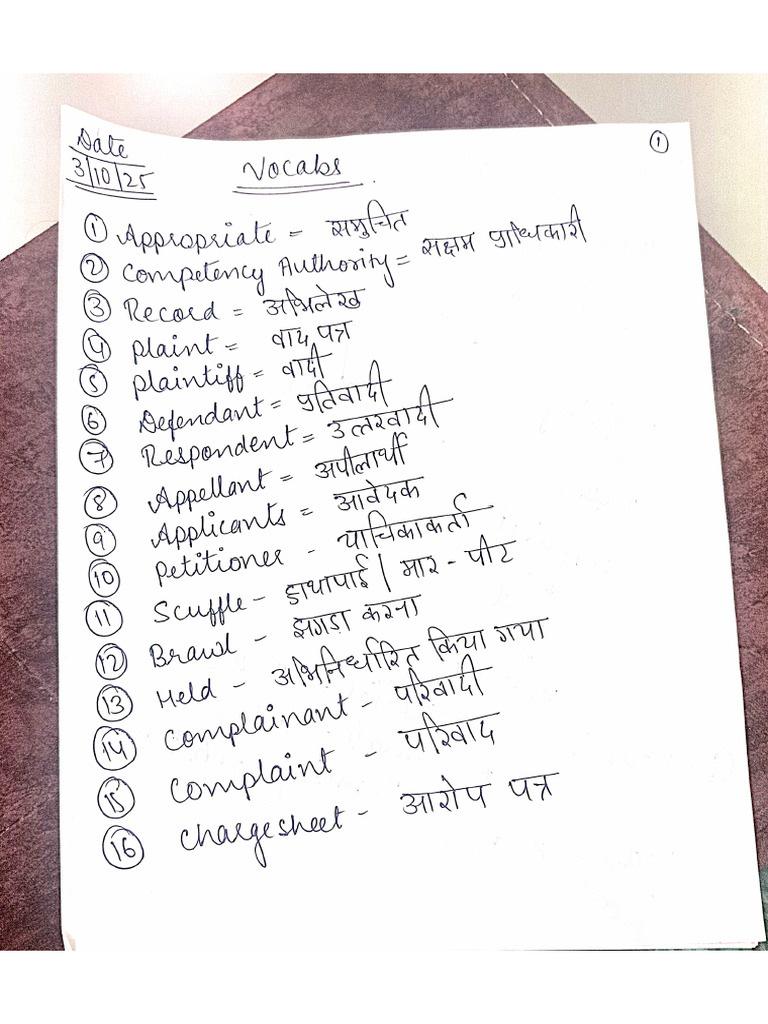 Date
3/10/25
Vocabs.
1
1 Appropriate = समुचित
2 Competency Authority = सक्षम प्राधिकारी
3 Record = अभिलेख
4 plaint = वाद पत्र
5 plaintiff = वादी
6 Defendant = प्रतिवादी
7 Respondent = उत्तरवादी
8 Appellant = अपीलार्थी
9 Applicants = आवेदक
10 Petitioner - याचिकाकर्ता
11 Scuffle - हाथापाई / मार - पीट
12 Brawl - झगड़ा करना
13 Held - अभिनिर्धारित किया गया
14 Complainant - परिवादी
15 Complaint - परिवाद
16 Chargesheet - आरोप पत्र